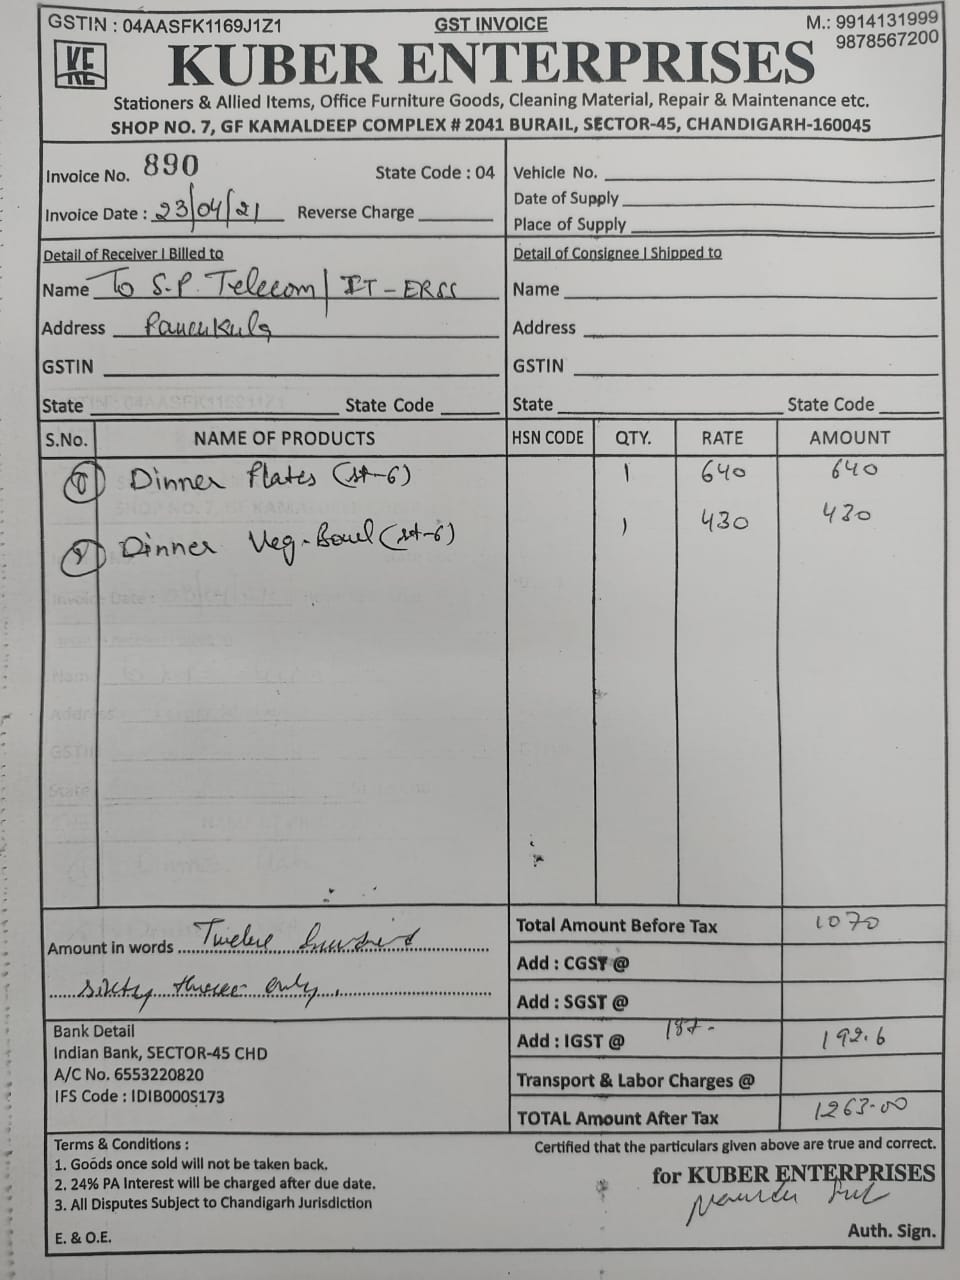 GSTIN : 04AASFK1169J1Z1
GST INVOICE
M.: 9914131999
9878567200
KUBER ENTERPRISES
Stationers & Allied Items, Office Furniture Goods, Cleaning Material, Repair & Maintenance etc.
SHOP NO. 7, GF KAMALDEEP COMPLEX # 2041 BURAIL, SECTOR-45, CHANDIGARH-160045
Invoice No. 890 State Code : 04
Invoice Date : 23/04/21 Reverse Charge
Vehicle No.
Date of Supply
Place of Supply
Detail of Receiver | Billed to
Name To S.P. Telecom / IT-ERSS
Address Panchkula
GSTIN
State State Code
Detail of Consignee | Shipped to
Name
Address
GSTIN
State State Code
S.No. NAME OF PRODUCTS HSN CODE QTY. RATE AMOUNT
1 Dinner Plates (set-6) 1 640 640
2 Dinner Veg-Bowl (set-6) 1 430 430
Amount in words Twelve hundred
sixty three only.
Total Amount Before Tax 1070
Add : CGST @
Add : SGST @
Add : IGST @ 18%- 192.6
Transport & Labor Charges @
TOTAL Amount After Tax 1263-00
Bank Detail
Indian Bank, SECTOR-45 CHD
A/C No. 6553220820
IFS Code : IDIB000S173
Terms & Conditions :
1. Goods once sold will not be taken back.
2. 24% PA Interest will be charged after due date.
3. All Disputes Subject to Chandigarh Jurisdiction
E. & O.E.
Certified that the particulars given above are true and correct.
for KUBER ENTERPRISES
Auth. Sign.